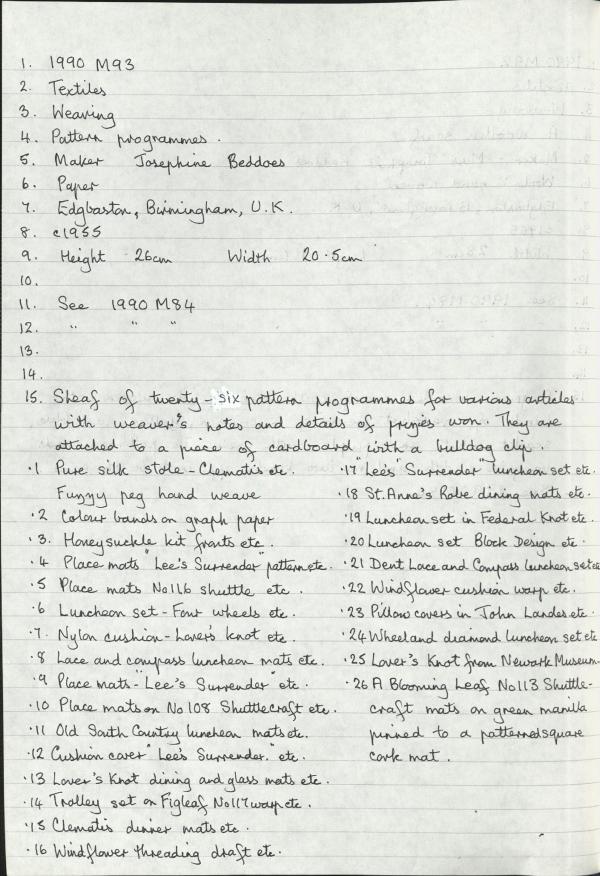 1. 1990 M93
2. Textiles
3. Weaving
4. Pattern programmes.
5. Maker Josephine Beddoes
6. Paper
7. Edgbaston, Birmingham, U.K.
8. c1955
9. Height 26cm Width 20.5cm
10.
11. See 1990 M84
12. " " "
13.
14.
15. Sheaf of twenty-six pattern programmes for various articles
with weaver's notes and details of prizes won. They are
attached to a piece of cardboard with a bulldog clip.
.1 Pure silk stole - Clematis etc.
Fuzzy peg hand weave
.2 Colour bands on graph paper
.3. Honeysuckle kit fronts etc.
.4 Place mats "Lee's Surrender" pattern etc.
.5 Place mats No 116 shuttle etc.
.6 Luncheon set - Four wheels etc.
.7. Nylon cushion - Lover's knot etc.
.8 Lace and compass luncheon mats etc.
.9 Place mats - "Lee's Surrender" etc.
.10 Place mats on No 108 Shuttlecraft etc.
.11 Old South Country luncheon mats etc.
.12 Cushion cover "Lee's Surrender." etc.
.13 Lover's Knot dining and glass mats etc.
.14 Trolley set on Figleaf No 117 warp etc.
.15 Clematis dinner mats etc.
.16 Windflower threading draft etc.
.17 "Lee's" Surrender" luncheon set etc.
.18 St. Anne's Robe dining mats etc.
.19 Luncheon set in Federal Knot etc.
.20 Luncheon set Block Design etc.
.21 Dent Lace and Compass luncheon set etc
.22 Windflower cushion warp etc.
.23 Pillow covers in John Landes etc.
.24 Wheel and diamond luncheon set etc
.25 Lover's Knot from Newark Museum.
.26 A Blooming Leaf No 113 Shuttle-
craft mats on green manilla
pinned to a patterned square
cork mat.